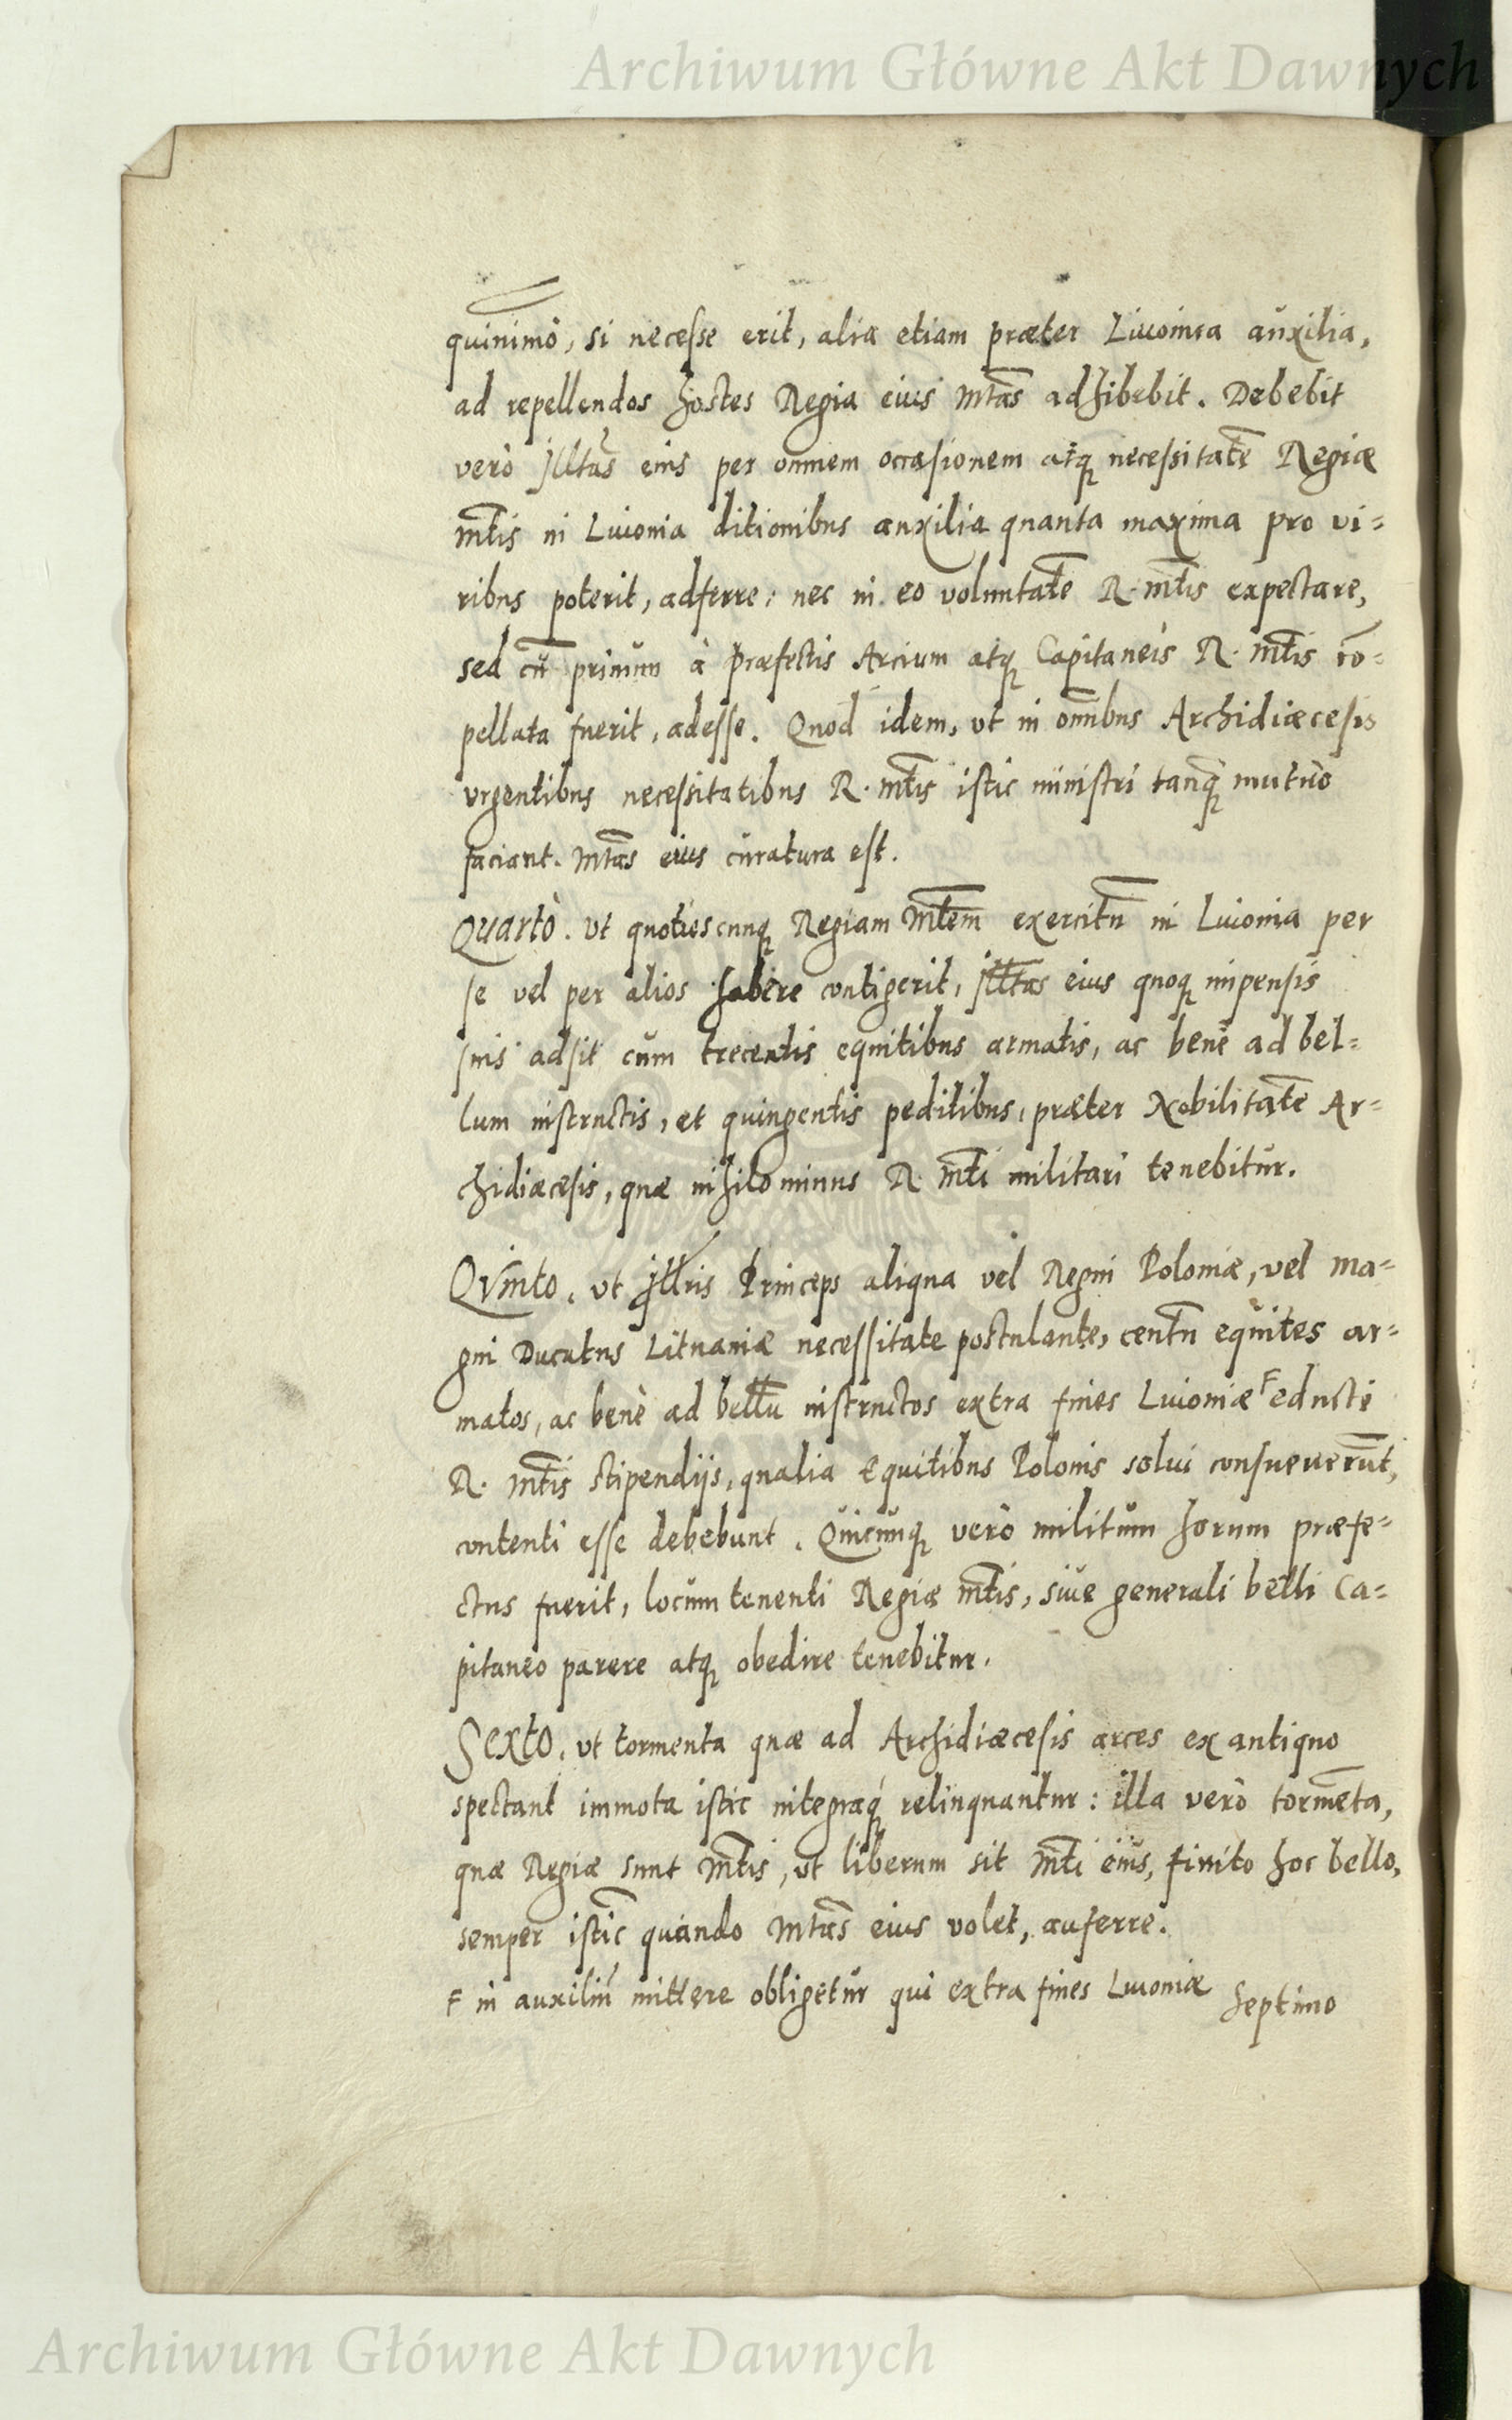 Archiwum Główne Akt Dawnych
quinimò, si necesse erit, alia etiam præter Liuonica auxilia,
ad repellendos hostes Regia eius Mtas adhibebit. Debebit
verò Illtas eius per omnem occasionem atq necessitatē Regiæ
Mtis in Liuonia ditionibus auxilia quanta maxima pro vi=
ribus poterit, adferre: nec in eo voluntatē R. Mtis expectare,
sed cū primum à Præfectis Arcium atq Capitaneis R. Mtis cō=
pellata fuerit, adesse. Quod idem, vt in omībus Archidiæcesis
vrgentibus necessitatibus R. Mtis istic ministri tanq mutuò
faciant. Mtas eius curatura est.
Quartò. Vt quotiescunq Regiam Mtem exercitū in Liuonia per
se vel per alios habere contigerit, Illtas eius quoq impensis
suis adsit cum trecentis equitibus armatis, ac benè ad bel=
lum instructis, et quingentis peditibus, præter Nobilitatē Ar=
chidiæcesis, quæ nihilominus R. Mti militari tenebitur.
Qvinto. vt Illris Princeps aliqua vel Regni Poloniæ, vel ma=
gni Ducatus Lituaniæ necessitate postulante, centū equites ar=
matos, ac benè ad bellū instructos extra fines Liuoniæ F educti
R. Mtis stipendijs, qualia Equitibus Polonis solui consueuerūt,
contenti esse debebunt. Quicunq verò militum horum præfe=
ctus fuerit, locum tenenti Regiæ Mtis, siue generali belli Ca=
pitaneo parere atq obedire tenebitur.
Sexto. vt tormenta quæ ad Archidiæcesis arces ex antiquo
spectant immota istic integraq relinquantur: illa verò tormēta,
quæ Regiæ sunt Mtis, vt liberum sit Mti eius, finito hoc bello,
semper istīc quando Mtas eius volet, auferre.
F in auxiliū mittere obligetur qui extra fines Liuoniæ
Septimo
Archiwum Główne Akt Dawnych